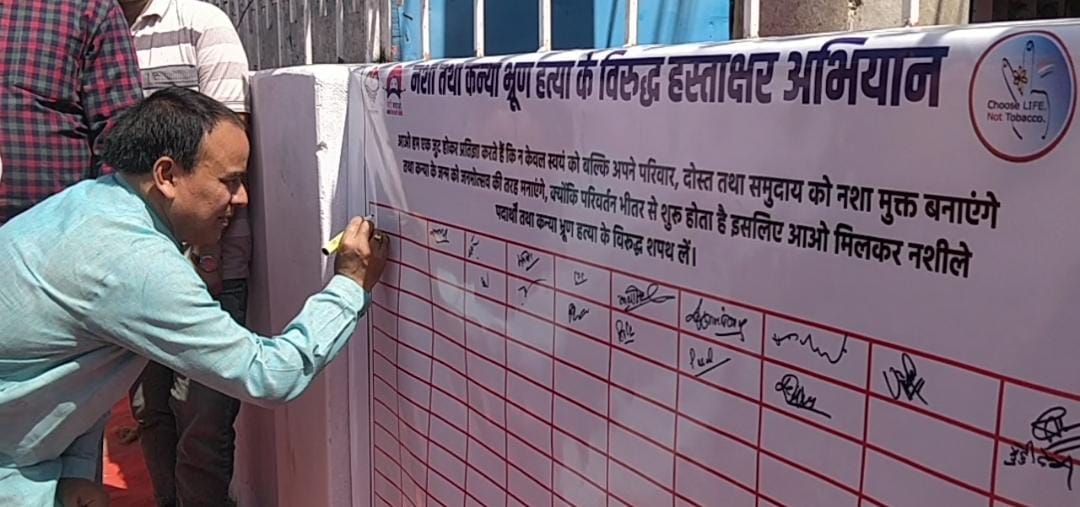 नशा तथा कन्या भ्रूण हत्या के विरुद्ध हस्ताक्षर अभियान
Choose LIFE.
Not Tobacco.
आओ हम एक जुट होकर प्रतिज्ञा करते हैं कि न केवल स्वयं को बल्कि अपने परिवार, दोस्त तथा समुदाय को नशा मुक्त बनाएंगे
तथा कन्या के जन्म को जन्मोत्सव की तरह मनाएंगे, क्योंकि परिवर्तन भीतर से शुरू होता है इसलिए आओ मिलकर नशीले
पदार्थों तथा कन्या भ्रूण हत्या के विरुद्ध शपथ लें।